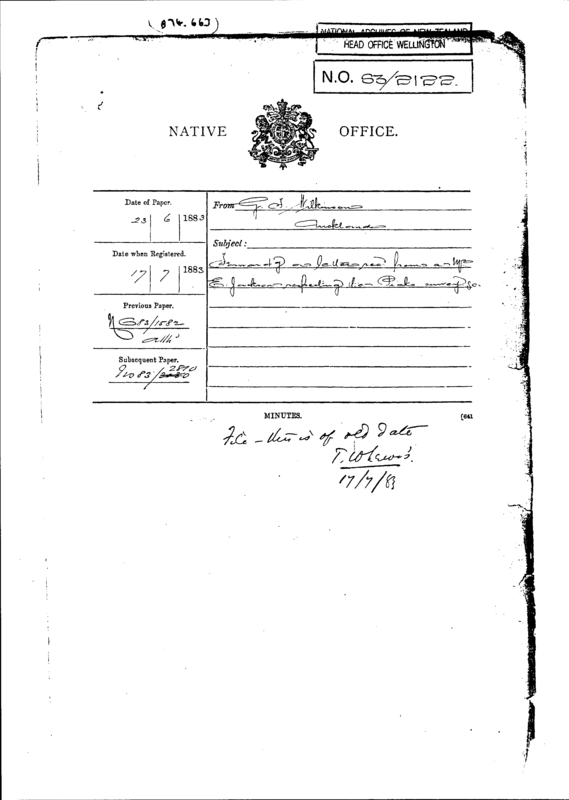 (874.663)
NATIONAL ARCHIVES OF NEW ZEALAND
HEAD OFFICE WELLINGTON
N.O. 83/2122.
NATIVE OFFICE.
Date of Paper.
23 6 1883
From G. T. Wilkinson
Auckland
Subject:
Date when Registered.
17/7 1883
Forward a letter from a Mr
E. Jackson respecting survey
Previous Paper.
NO83/1582
Subsequent Paper.
NO83/2810
MINUTES.
[641
File – this is of old date
T.W. Lewis.
17/7/83